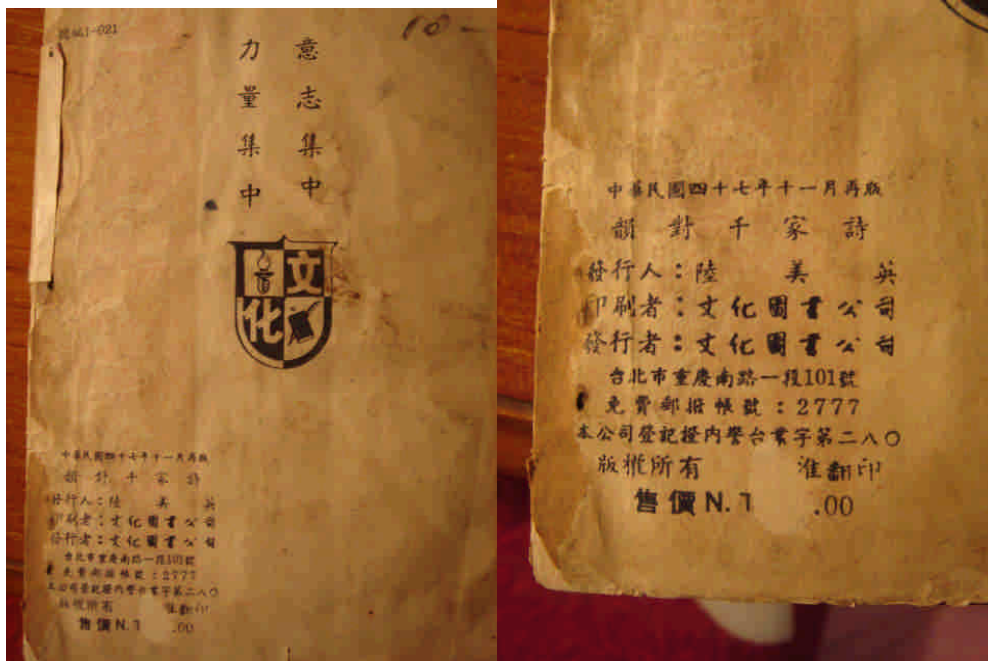 1-021
10 -
意志集中
力量集中
文化
中華民國四十七年十一月再版
韻對千家詩
發行人：陸美英
印刷者：文化圖書公司
發行者：文化圖書公司
台北市重慶南路一段101號
免費郵撥帳號：2777
本公司登記證內警台業字第二八〇
版權所有 准翻印
售價N.T .00
中華民國四十七年十一月再版
韻對千家詩
發行人：陸美英
印刷者：文化圖書公司
發行者：文化圖書公司
台北市重慶南路一段101號
免費郵撥帳號：2777
本公司登記證內警台業字第二八〇
版權所有 准翻印
售價N.T .00